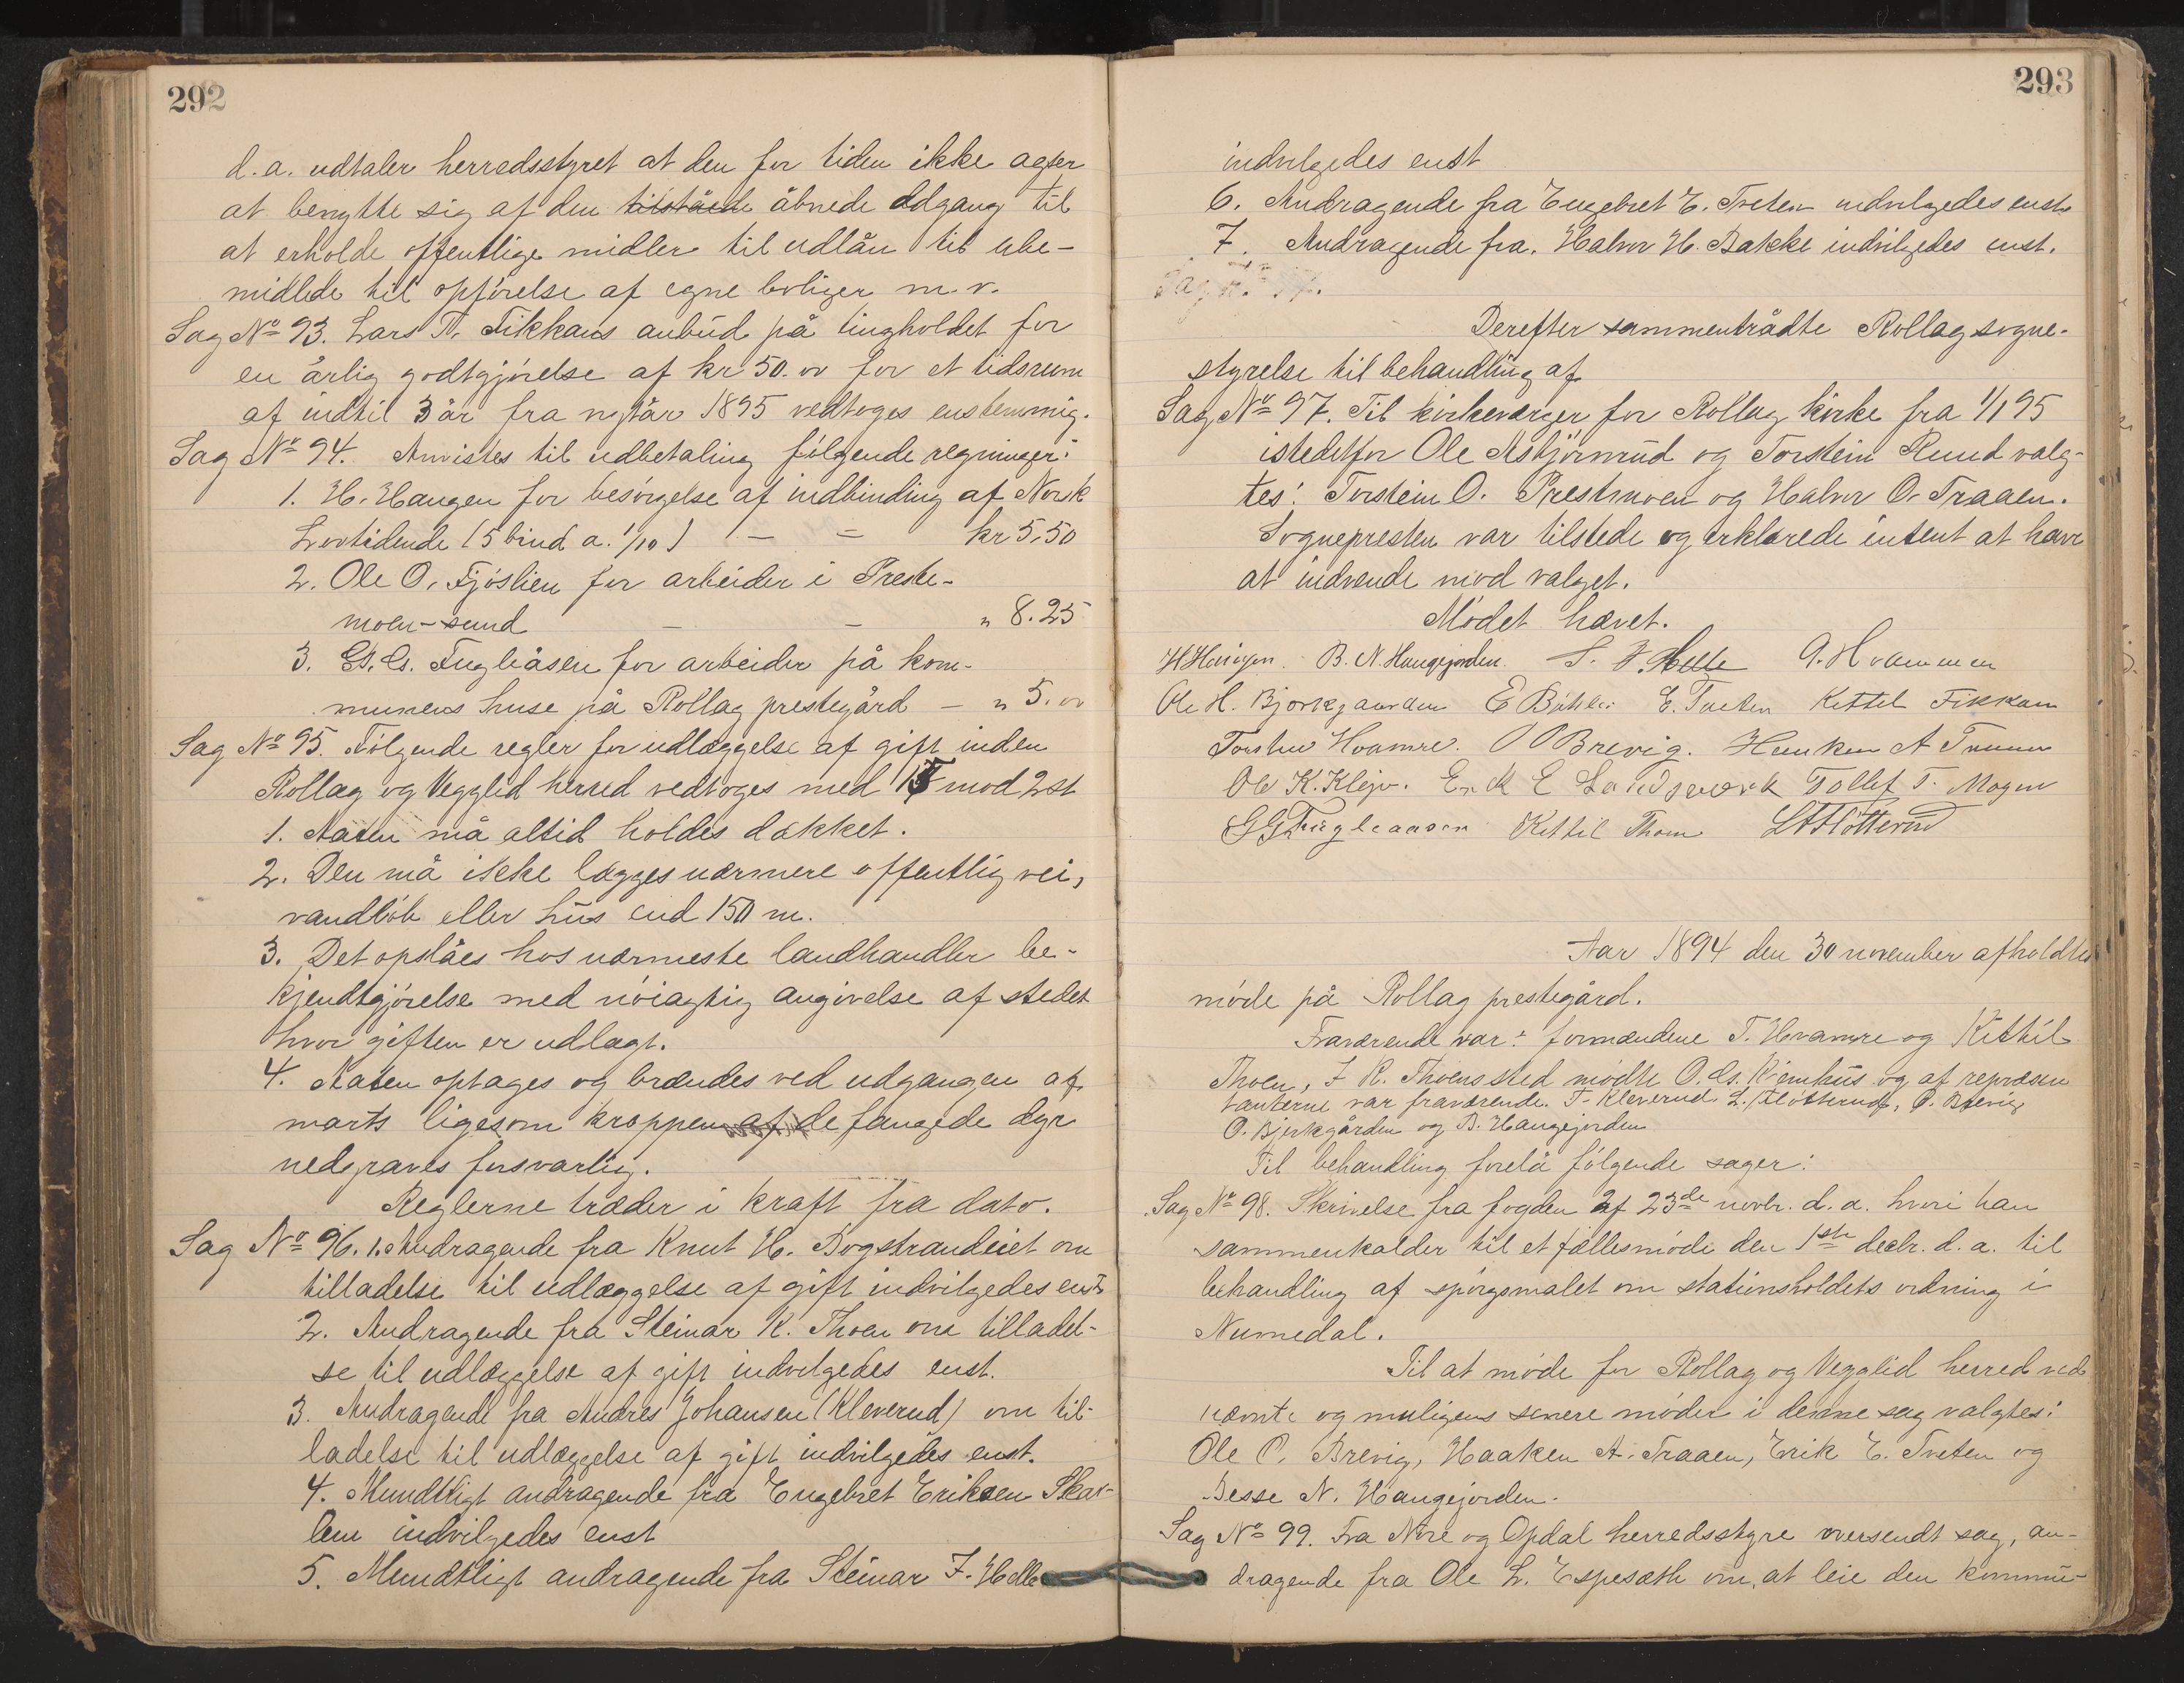 292
d.a. udtaler herredsstyret at den for tiden ikke agter
at benytte sig af den tilståede åbnede adgang til
at erholde offentlige midler til udlån til ube-
midlede til opførelse af egne boliger m.v.
Sag No 93. Lars T. Fikkans anbud på tingholdet for
en årlig godtgjørelse af kr 50.00 for et tidsrum
af indtil 3 år fra nytår 1895 vedtoges enstemmig.
Sag No 94. Anvistes til udbetaling følgende regninger:
1. H. Haugen for besørgelse af indbinding af Norsk
Lovtidende (5 bind a. 1/10) - = kr 5,50
2. Ole O. Fjøslien for arbeider i Preste-
moen-sund - - " 8.25
3. G. G. Fugleåsen for arbeider på kom-
munens huse på Rollag prestegård - " 5.00
Sag No 95. Følgende regler for udlæggelse af gift inden
Rollag og Vegglid herred vedtoges med 15 mod 2 st
1. Aaten må altid holdes dækket.
2. Den må ikke lægges nærmere offentlig vei,
vandløb eller hus end 150 m.
3. Det opslåes hos nærmeste landhandler be-
kjendtgjørelse med nøiagtig angivelse af stedet
hvor giften er udlagt.
4. Aaten optages og brændes ved udgangen af
marts ligesom kroppen af de fangede dyr
nedgraves forsvarlig.
Reglerne træder i kraft fra dato.
Sag No 96. 1. Andragende fra Knut H. Bogstrandeiet om
tilladelse til udlæggelse af gift indvilgedes enst
2. Andragende fra Steinar K. Thoen om tilladel-
se til udlæggelse af gift indvilgedes enst.
3. Andragende fra Andres Johansen (Kleverud) om til-
ladelse til udlæggelse af gift indvilgedes enst.
4. Mundtligt andragende fra Engebret Eriksen Skar-
lem indvilgedes enst
5. Mundtligt andragende fra Steinar F. Helle
293
indvilgedes enst
6. Andragende fra Engebret E. Tveten indvilgedes enst
7. Andragende fra Halvor H. Bakke indvilgedes enst.
Derefter sammentrådte Rollag sogne-
styrelse til behandling af
Sag No 97. Til kirkeværger for Rollag kirke fra 1/1 95
istedetfor Ole Asbjørnrud og Torstein Ruud valg-
tes: Torstein O. Prestmoen og Halvor O. Traaen.
Sognepresten var tilstede og erklærede intent at have
at indvende mod valget.
Mødet hævet.
H Haugen. B. N. Haugejorden. S. F. Helle A. Hvammen
Ole H. Bjørkgaarden E Bøhler E. Tveten Kettil Fikkan
Torsten Hvamre. O O Brevig. Haaken A Traaen
Ole K. Klejv. Erik E Landsverk Tollef T. Mogen
G G Fugleaasen Kittil Thoen L T Fløtterud
Aar 1894 den 30 november afholdtes
møde på Rollag prestegård.
Fraværende var: formændene T. Hvamre og Kittil
Thoen, F K. Thoens sted mødte O. Gs. Kjemhus og af repræsen
tanterne var fraværende. T. Kleverud L. Fløtterud, O. Brevig
O. Bjerkgården og B. Haugejorden
Til behandling forelå følgende sager:
Sag No 98. Skrivelse fra fogden af 23de novbr. d.a. hvori han
sammenkalder til et fællesmøde den 1ste decbr. d.a. til
behandling af spørgsmalet om stationsholdets ordning i
Numedal.
Til at møde for Rollag og Vegglid herred ved
nævnte og muligens senere møder i denne sag valgtes:
Ole O. Brevig, Haaken A. Traaen, Erik E. Tveten og
Besse N. Haugejorden.
Sag No 99. Fra Nore og Opdal herredsstyre oversendt sag, an-
dragende fra Ole L. Espesæth om, at leie den kommu-